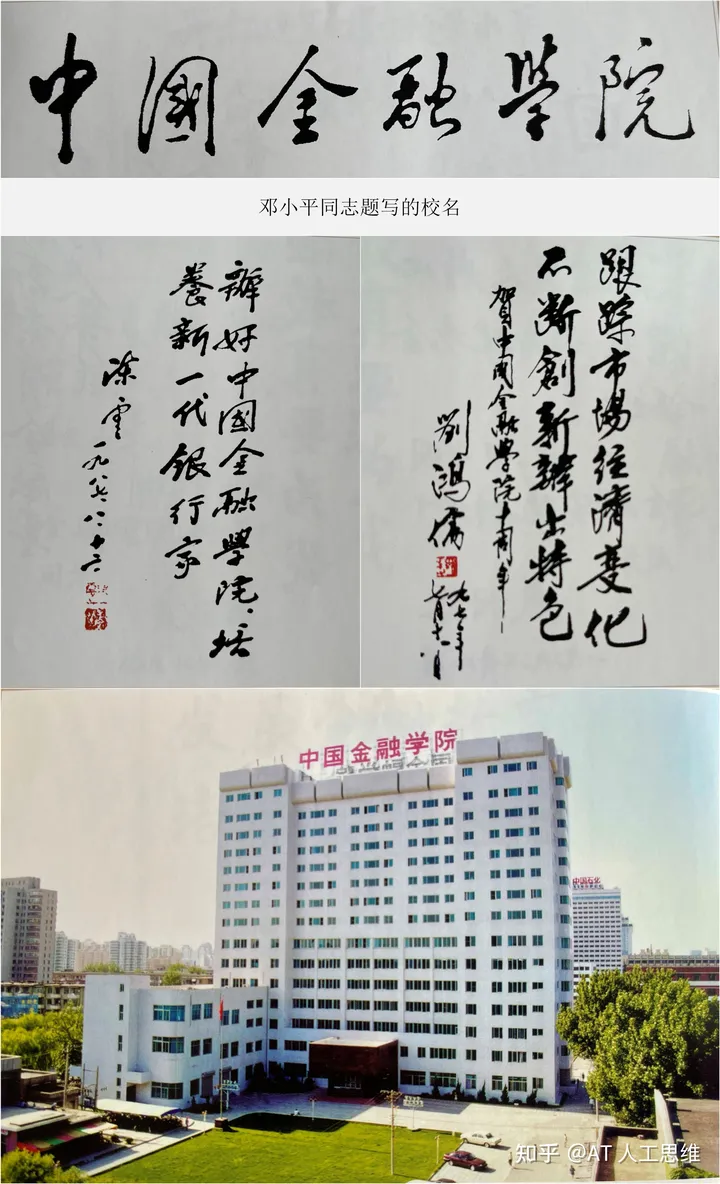 中國金融學院
邓小平同志题写的校名
辦好中國金融學院、培
養新一代銀行家
陳雲
一九八七、八、十六
跟踪市場经濟變化
不断創新辦出特色
賀中国金融學院十周年
劉鴻儒
九七年
中国金融学院
中国石化
知乎 @AT 人工思维